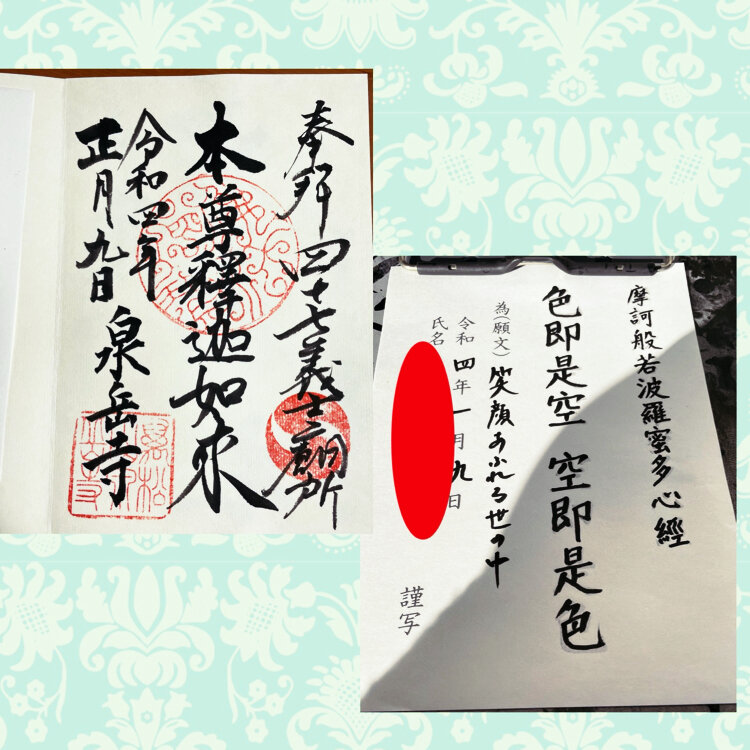 奉拝 四十七義士廟所
本尊釋迦如来
令和四年
正月九日 泉岳寺
摩訶般若波羅蜜多心經
色即是空 空即是色
為(願文) 笑顔あふれる世の中
令和四年一月九日
氏名
謹写